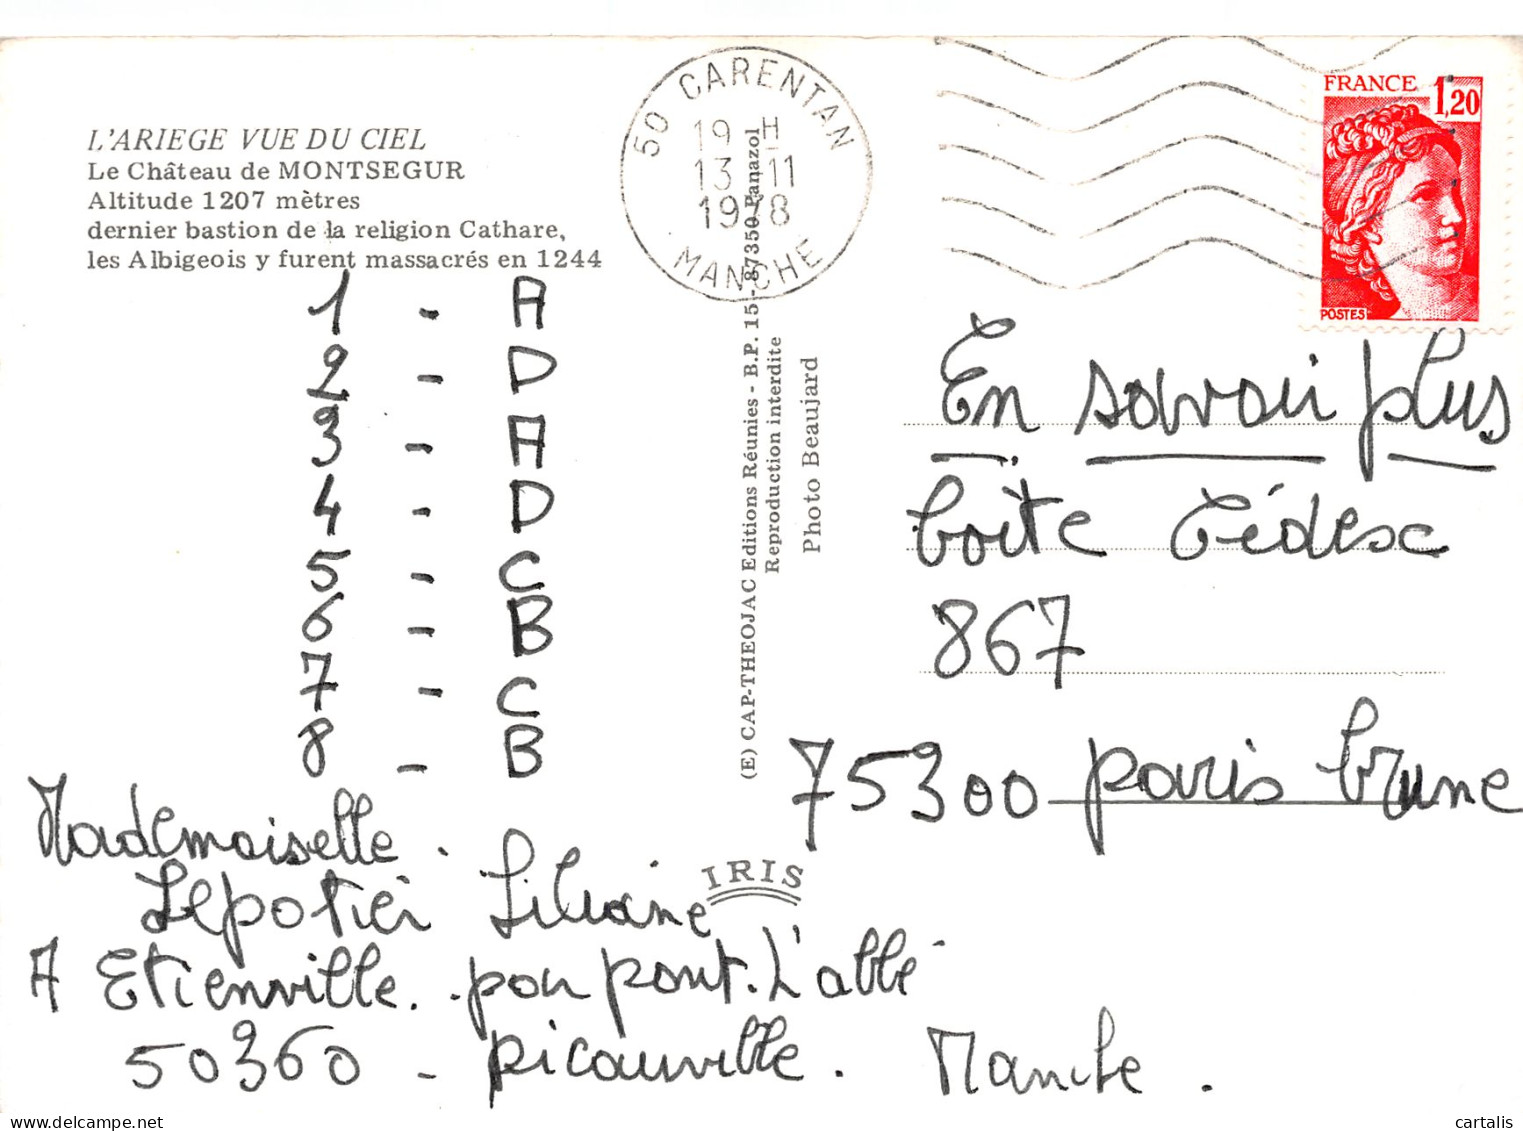 L'ARIEGE VUE DU CIEL
Le Château de MONTSEGUR
Altitude 1207 mètres
dernier bastion de la religion Cathare,
les Albigeois y furent massacrés en 1244
1 - A
2 - D
3 - A
4 - D
5 - C
6 - B
7 - C
8 - B
Mademoiselle.
Lepotier Liliane
A Etienville. . par pont. L'abbé
50360 - picauville. Manche.
50 CARENTAN
19 H
13 - 11
1978
MANCHE
(E) CAP-THEOJAC Editions Réunies - B.P. 15 - 87350 Panazol
Reproduction interdite
Photo Beaujard
IRIS
FRANCE 1,20
POSTES
En savoir plus
boîte Cédesc
867
75300 paris brune
cartalis.com